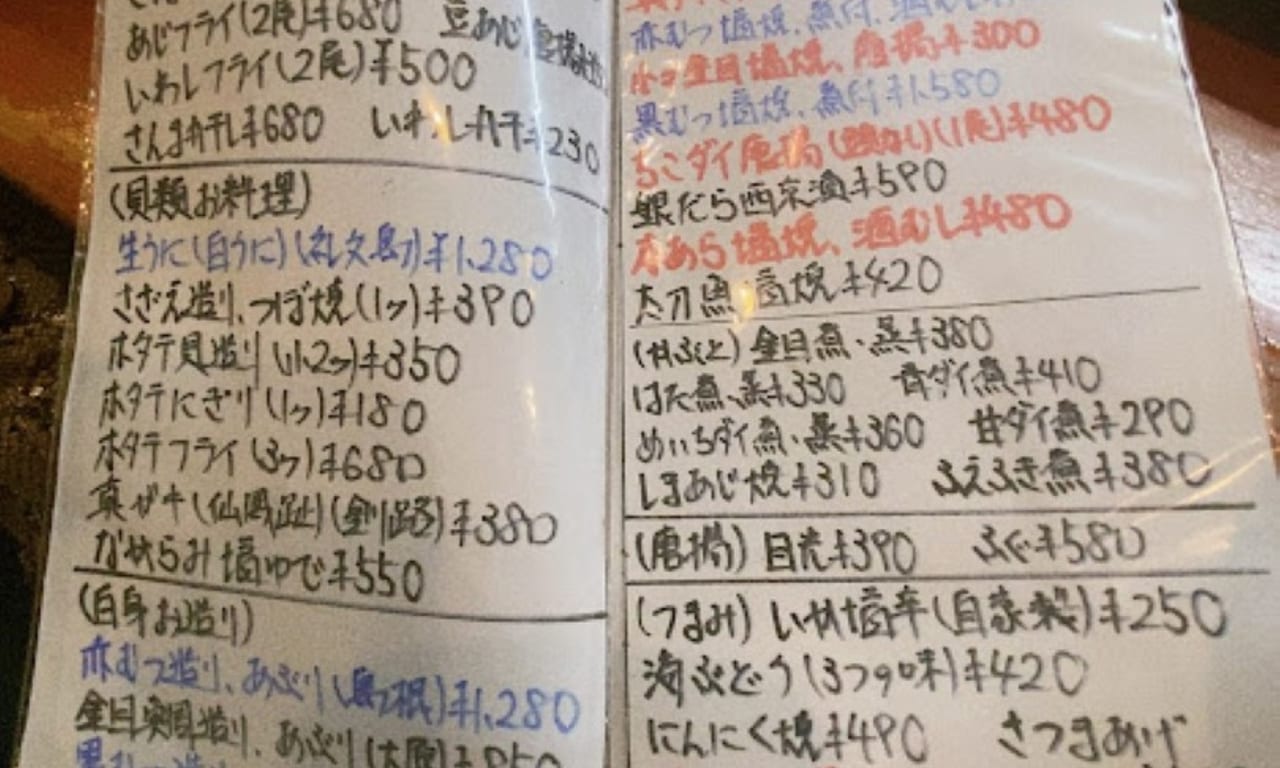 あじフライ(2尾)¥680 豆あじ唐揚
いわしフライ(2尾)¥500
さんま丸干し¥680 いわし丸干¥230
(貝類お料理)
生うに(白うに)(礼文島)¥1,280
さざえ造り、つぼ焼(1ヶ)¥390
ホタテ貝造り(小2ヶ)¥350
ホタテにぎり(1ヶ)¥180
ホタテフライ(3ヶ)¥680
真ガキ(仙鳳趾)(釧路)¥380
ながらみ塩ゆで¥550
(白身お造り)
赤むつ造り、あぶり¥1,280
金目実周造り、あぶり
黒むつ造り
赤むつ塩焼、煮付、酒むし
小々金目塩焼、唐揚¥300
黒むつ塩焼、煮付¥1,580
ちこダイ唐揚(1尾)¥480
銀だら西京漬¥590
本あら塩焼、酒むし¥480
太刀魚塩焼¥420
(かぶと)金目煮・蒸¥380
はた煮、蒸¥330 甘ダイ煮¥410
めいちダイ煮・蒸¥360 甘ダイ煮¥290
しまあじ焼¥310 ふえふき煮¥380
(唐揚)目光¥390 ふぐ¥580
(つまみ)いか塩辛(自家製)¥250
海ぶどう(3つの味)¥420
にんにく焼¥490 さつまあげ